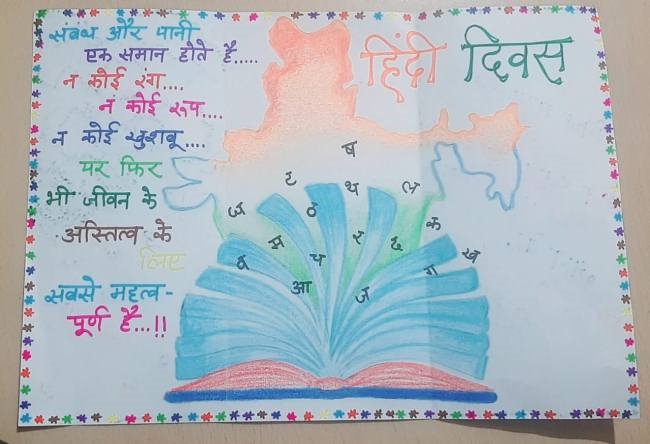 संबंध और पानी
एक समान होते है.....
न कोई रंग....
न कोई रूप....
न कोई खुशबू....
पर फिर
भी जीवन के
अस्तित्व के
लिए
सबसे महत्व-
पूर्ण है...!!
हिंदी दिवस
ब
ट थ
ज ठ
क
म र द ख
व च ग
आ ज